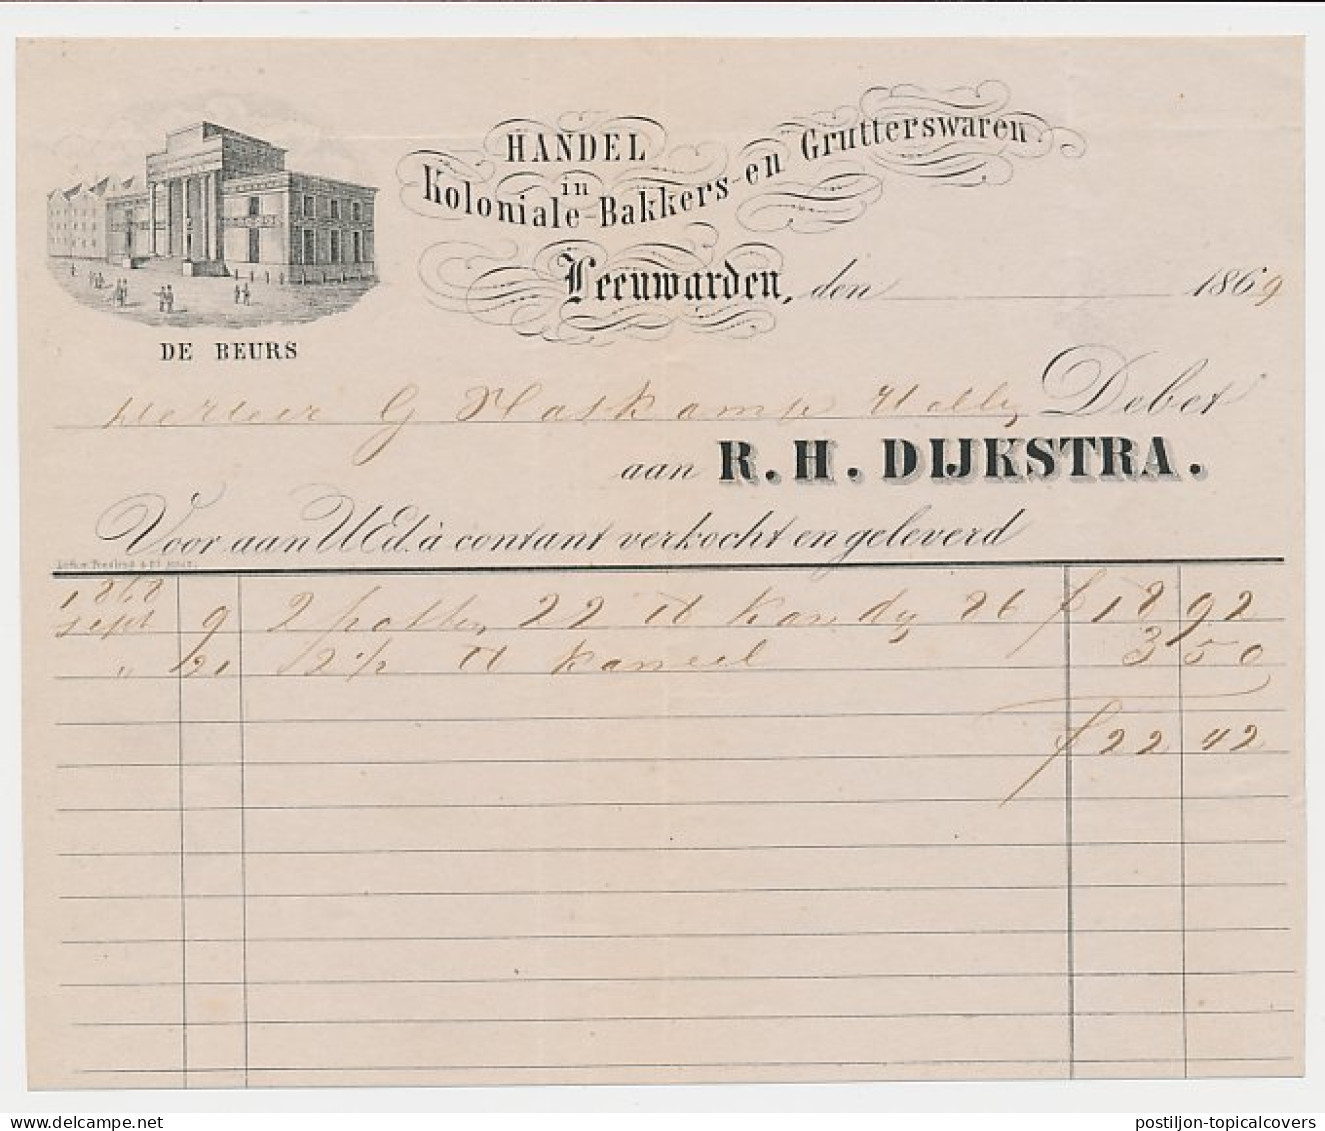 HANDEL
in
Koloniale-Bakkers-en Grutterswaren
Leeuwarden, den 1869
DE BEURS
G Haskamp Debet
aan R. H. DIJKSTRA.
Voor aan UEd. à contant verkocht en geleverd
1868
Sept 9 2 potten 22 ℔ Kandy 86 ƒ 18 92
" 21 2 1/2 ℔ Kaneel 3 50
ƒ 22 42
postiljon-topicalcovers